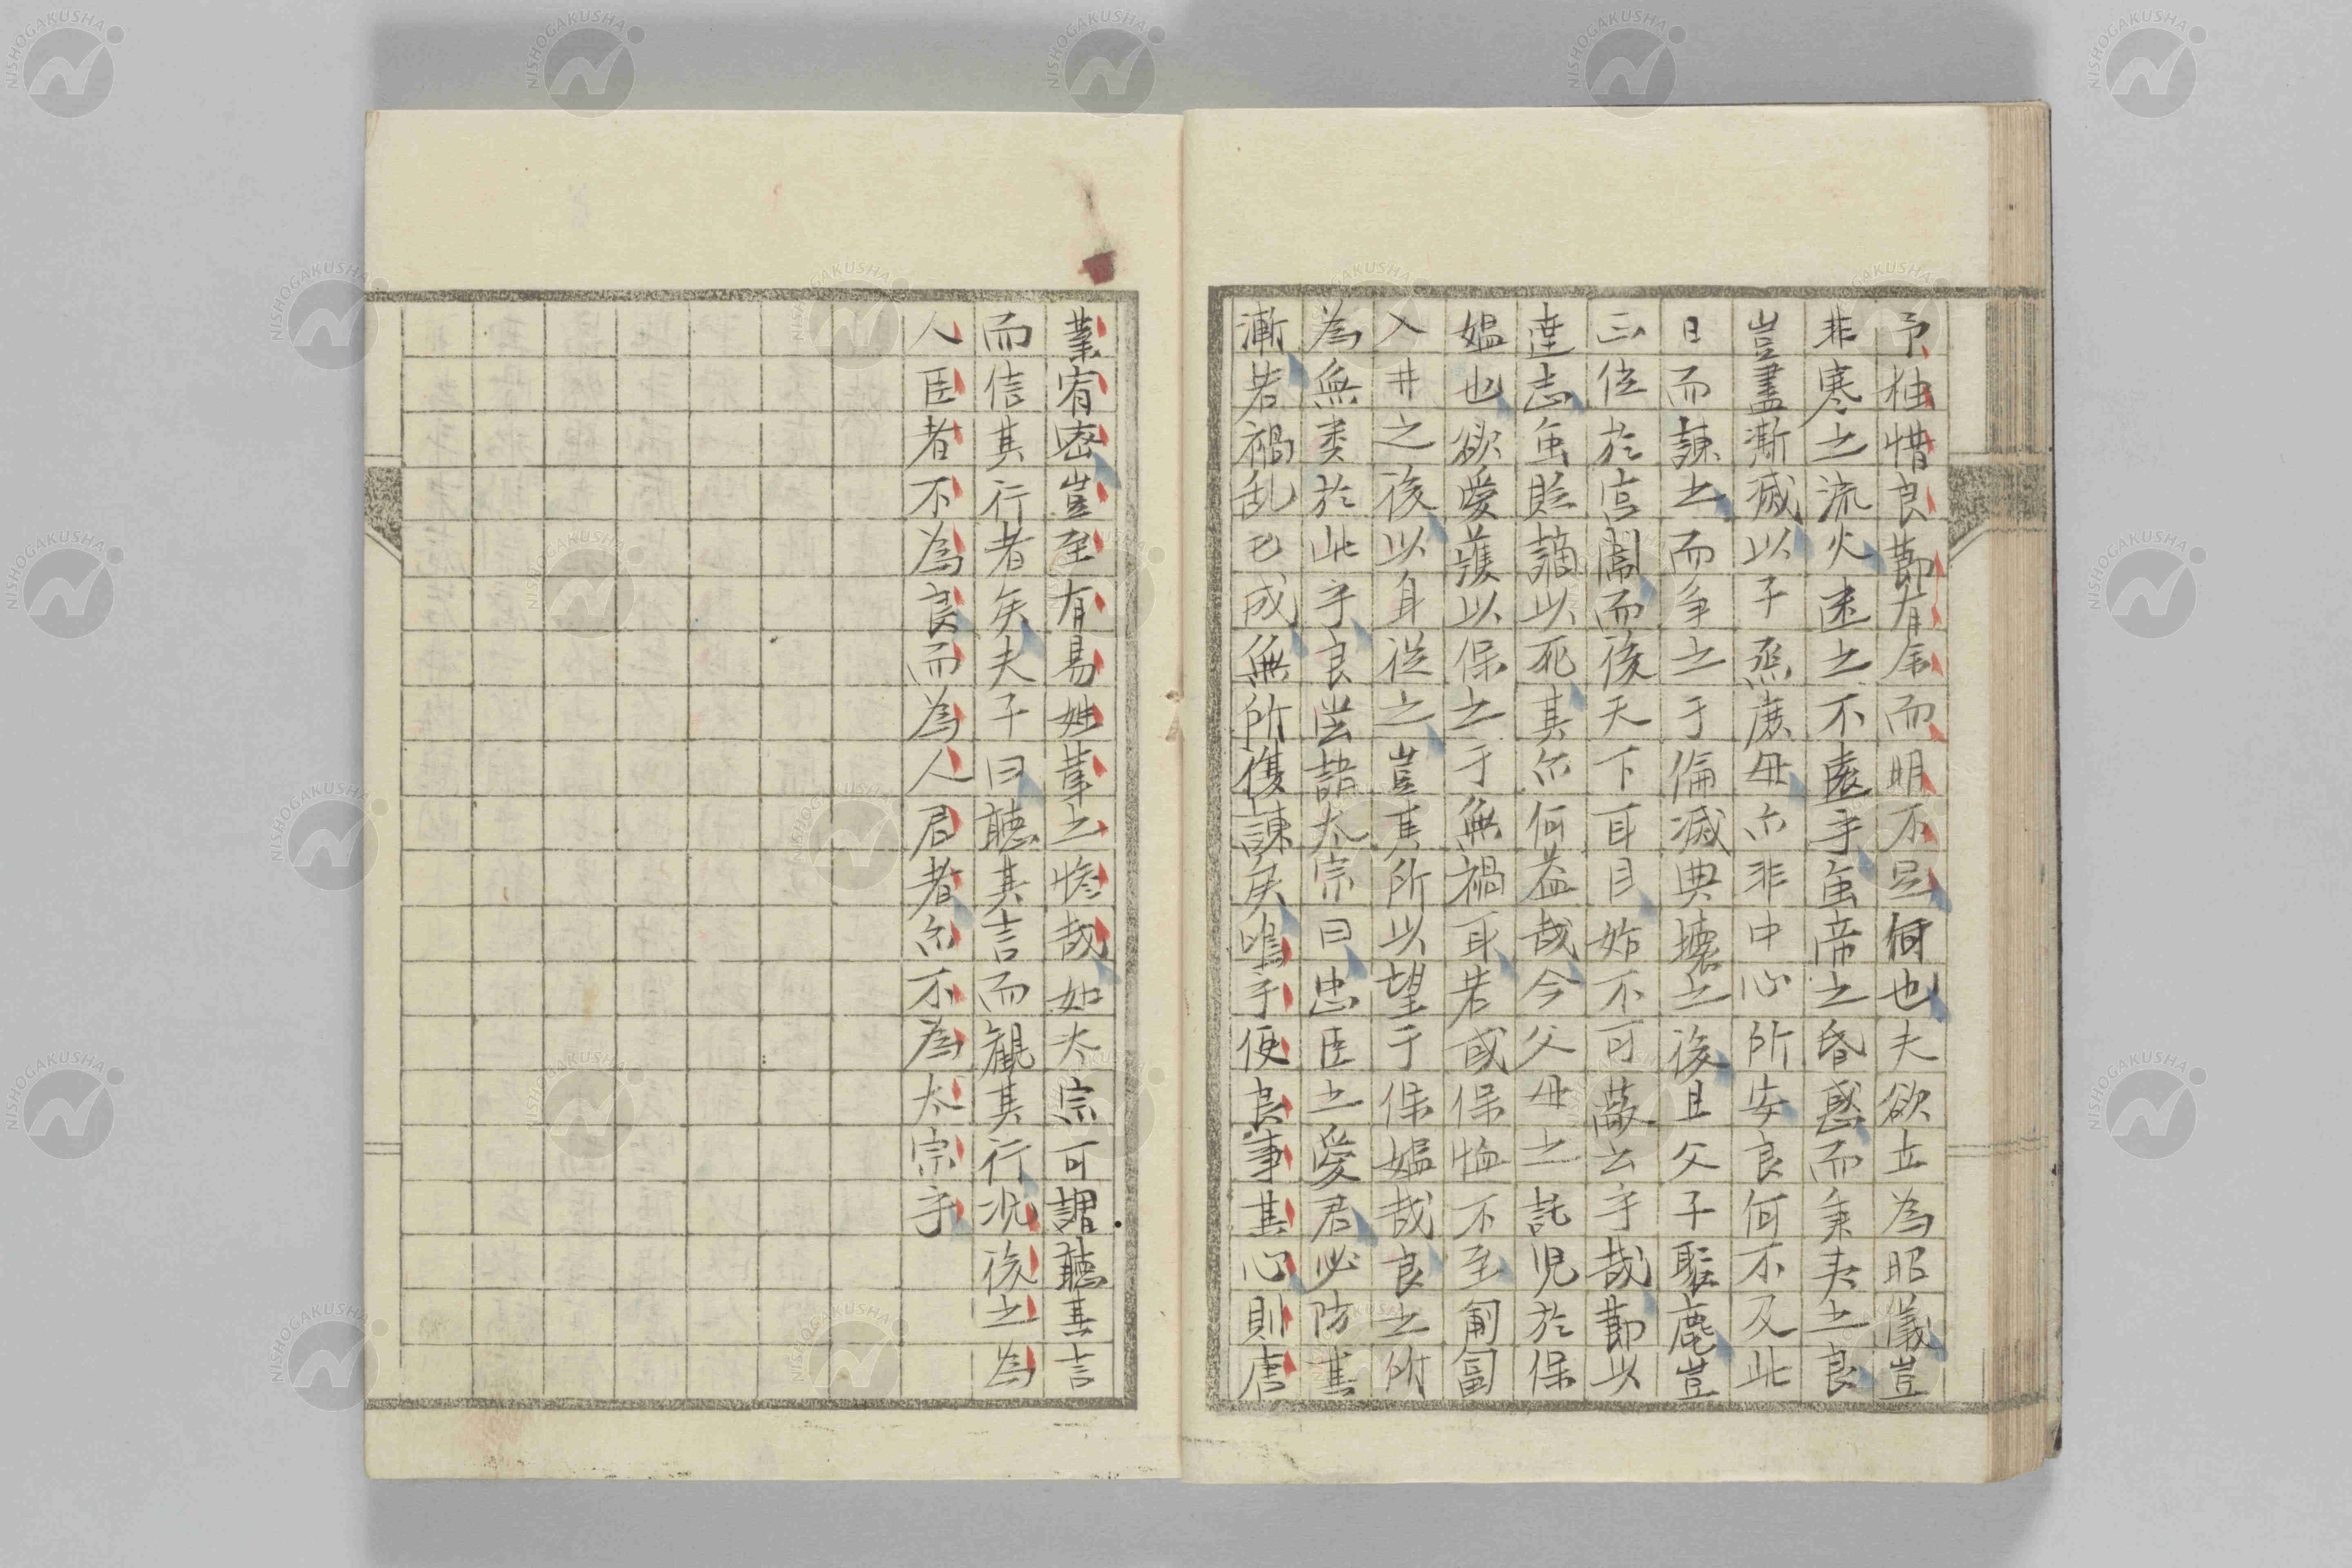 予独惜良節有余而明不足何也夫欲立為昭儀豈
非寒之流火速之不遠乎虽帝之昏惑而秉夷之良
豈盡澌滅以子烝庶母亦非中心所安良何不及此
日而諫之而争之于倫滅典壊之後且父子聚麀豈
正位於宮闈而後天下耳目始不可蔽云乎哉節以
達志虽貶謫以死其亦何益哉今父母之託児於保
媼也欲愛護以保之于無禍耳若或保恤不至匍匐
入井之後以身従之豈其所以望于保媼哉良之所
為無类於此乎良尝諸太宗曰忠臣之愛君必防其
漸若禍乱已成無所復諫矣嗚乎使良事其心則唐
業宥密豈至有易姓革之惨哉如太宗可謂聴其言
而信其行者矣夫子曰聴其言而観其行况後之為
人臣者不為良而為人君者亦不為太宗乎
NISHOGAKUSHA